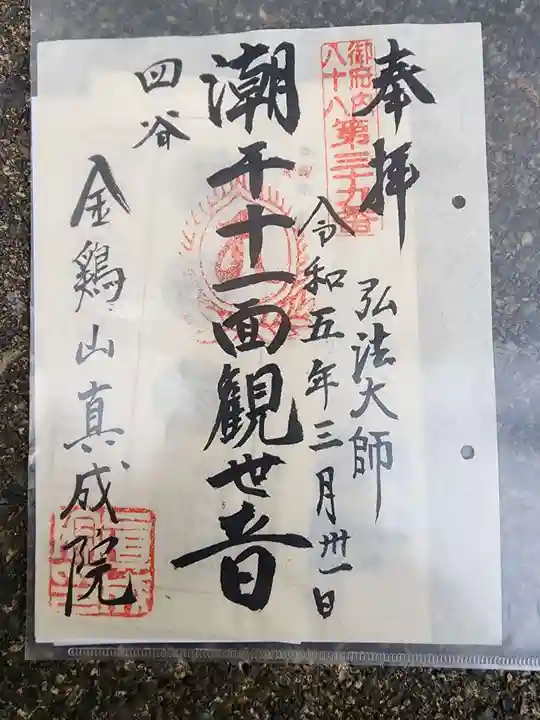 奉拝
弘法大師
御府内
八十八
第三十九番
令和五年三月卅一日
潮干十一面観世音
四谷
金鶏山真成院